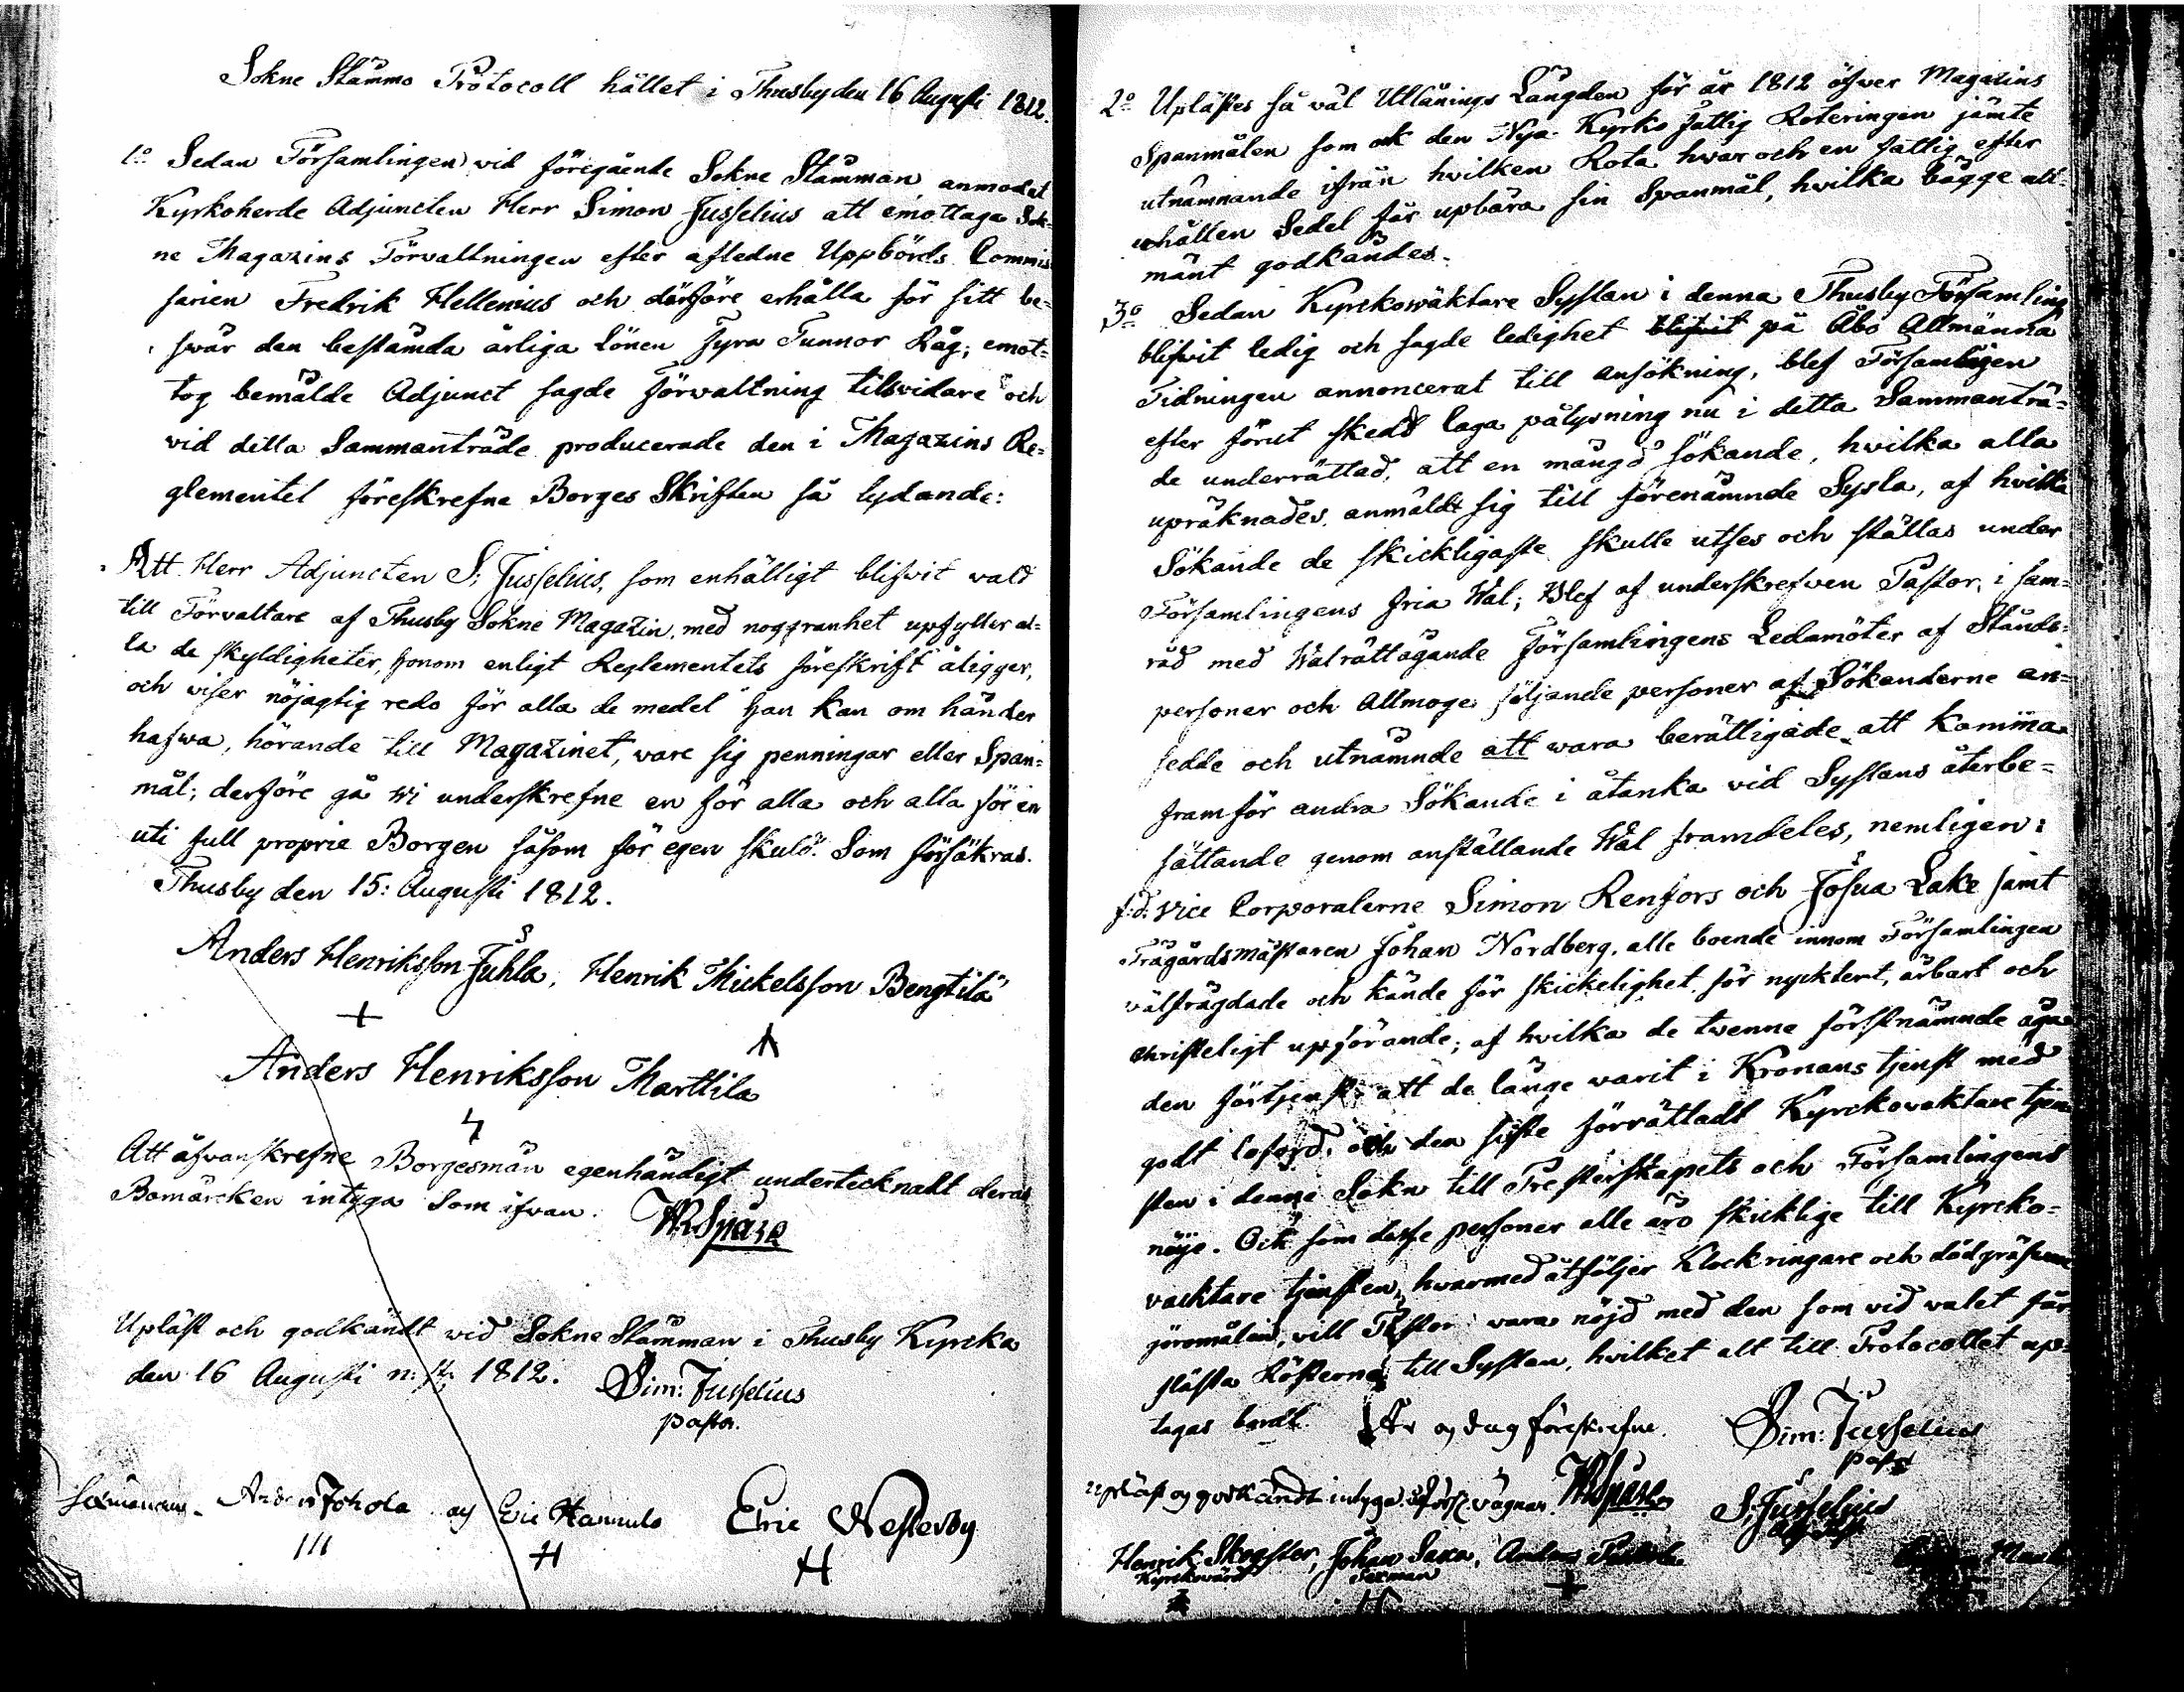 Sokne Stämmo Protocoll hållet i Thusby den 16 Augusti 1812.
1o Sedan Församlingen vid föregående Sokne Stämman anmodat
Kyrkoherde Adjuncten Herr Simon Jusselius att emottaga Sok=
ne Magazins Förvaltningen efter afledne Uppbörds Commis
sarien Fredrik Hellenius och därföre erhålla för sitt be=
swär den bestämda årliga Lönen fyra Tunnor Råg; emot=
tog bemälde Adjunct sagde förvaltning tilsvidare och
vid detta Sammanträde producerade den i Magazins Re=
glementet föreskrefne Borges Skriften så lydande:
Att Herr Adjuncten S: Jusselius, som enhälligt blifvit vald
till Förvaltare af Thusby Sokne Magazin, med noggranhet upfyller al=
la de skyldigheter, honom enligt Reglementets föreskrift åligger,
och viser nöjagtig redo för alla de medel han kan om händer
hafwa, hörande till Magazinet, vare sig penningar eller Span=
mål; derföre gå wi underskrefne en för alla och alla för en
uti full proprie Borgen såsom för egen skuld. Som försäkras.
Thusby den 15: Augusti 1812.
Anders Henriksson Juhla, Henrik Mickelsson Bengtilä
Anders Henriksson Marttila
Att åfvanskrefne Borgesmän egenhändigt undertecknadt deras
Bomärcken intyga Som ofvan. WR Spåre
Upläst och godkändt vid Sokne Stämman i Thusby Kyrcka
den 16 Augusti n: st: 1812. Sim: Jusselius
pastor.
Sexmännerne. Anders Johola og Eric Hannula Eric Westerby
2o Upläстes så väl Utlånings Längden för år 1812 öfver Magazins
Spanmålen som ock den Nya Kyrko fattig Roteringen jämte
utnämnande ifrån hvilken Rota hwar och en fattig efter
erhållen Sedel får upbära sin Spanmål, hvilka bägge all=
mänt godkändes.
3o Sedan Kyrckowäktare Sysslan i denna Thusby Församling
blifwit ledig och sagde ledighet blifwit på Åbo Allmänna
Tidningen annoncerat till ansökning, blef Församlingen
efter förut skedd laga pålysning nu i detta Sammanträ=
de underrättad, att en mängd sökande, hvilka alla
upräknades, anmäldt sig till förenämnde Sysla, af hvilka
Sökande de skickligaste skulle utses och ställas under
Församlingens fria Wal; Blef af underskrefven Pastor, i sam=
råd med Walrättägande Församlingens Ledamöter af Stånds=
personer och Allmoge följande personer af Sökanderne an=
sedde och utnämnde att wara berättigade att komma
framför andra Sökande i åtanka vid Sysslans återbe=
sättande genom anställande Wal framdeles, nemligen:
f: d: vice Corporalerne Simon Renfors och Josua Lake samt
Trägårdsmästaren Johan Nordberg, alle boende innom Församlingen
välfrägdade och kände för skickelighet, för nycktert, ärbart och
christeligt upförande; af hvilka de twenne förstnämnde äga
den förtjenst att de länge warit i Kronans tjenst med
godt loford, och den siste förrättadt Kyrckovaktare tjen
sten i denne Sokn till Presterskapets och Församlingens
nöije. Och som desse personer alle äro skicklige till Kyrcko=
vacktare tjensten, hwarmed åtföljer Klockringare och dödgräfware
göromålen, vill Pastor wara nöjd med den som vid valet får
flästa Rösterna till Sysslan, hvilket alt till Protocollet up=
tagas borde. År og dag föreskrefne. Sim: Jusselius
past
upläst og godkändt intyga å förs: vägnar WR Spåre S: Jusselius
Henrik Skogster, Johan Saxa, Anders
Kyrckowärd Sexman